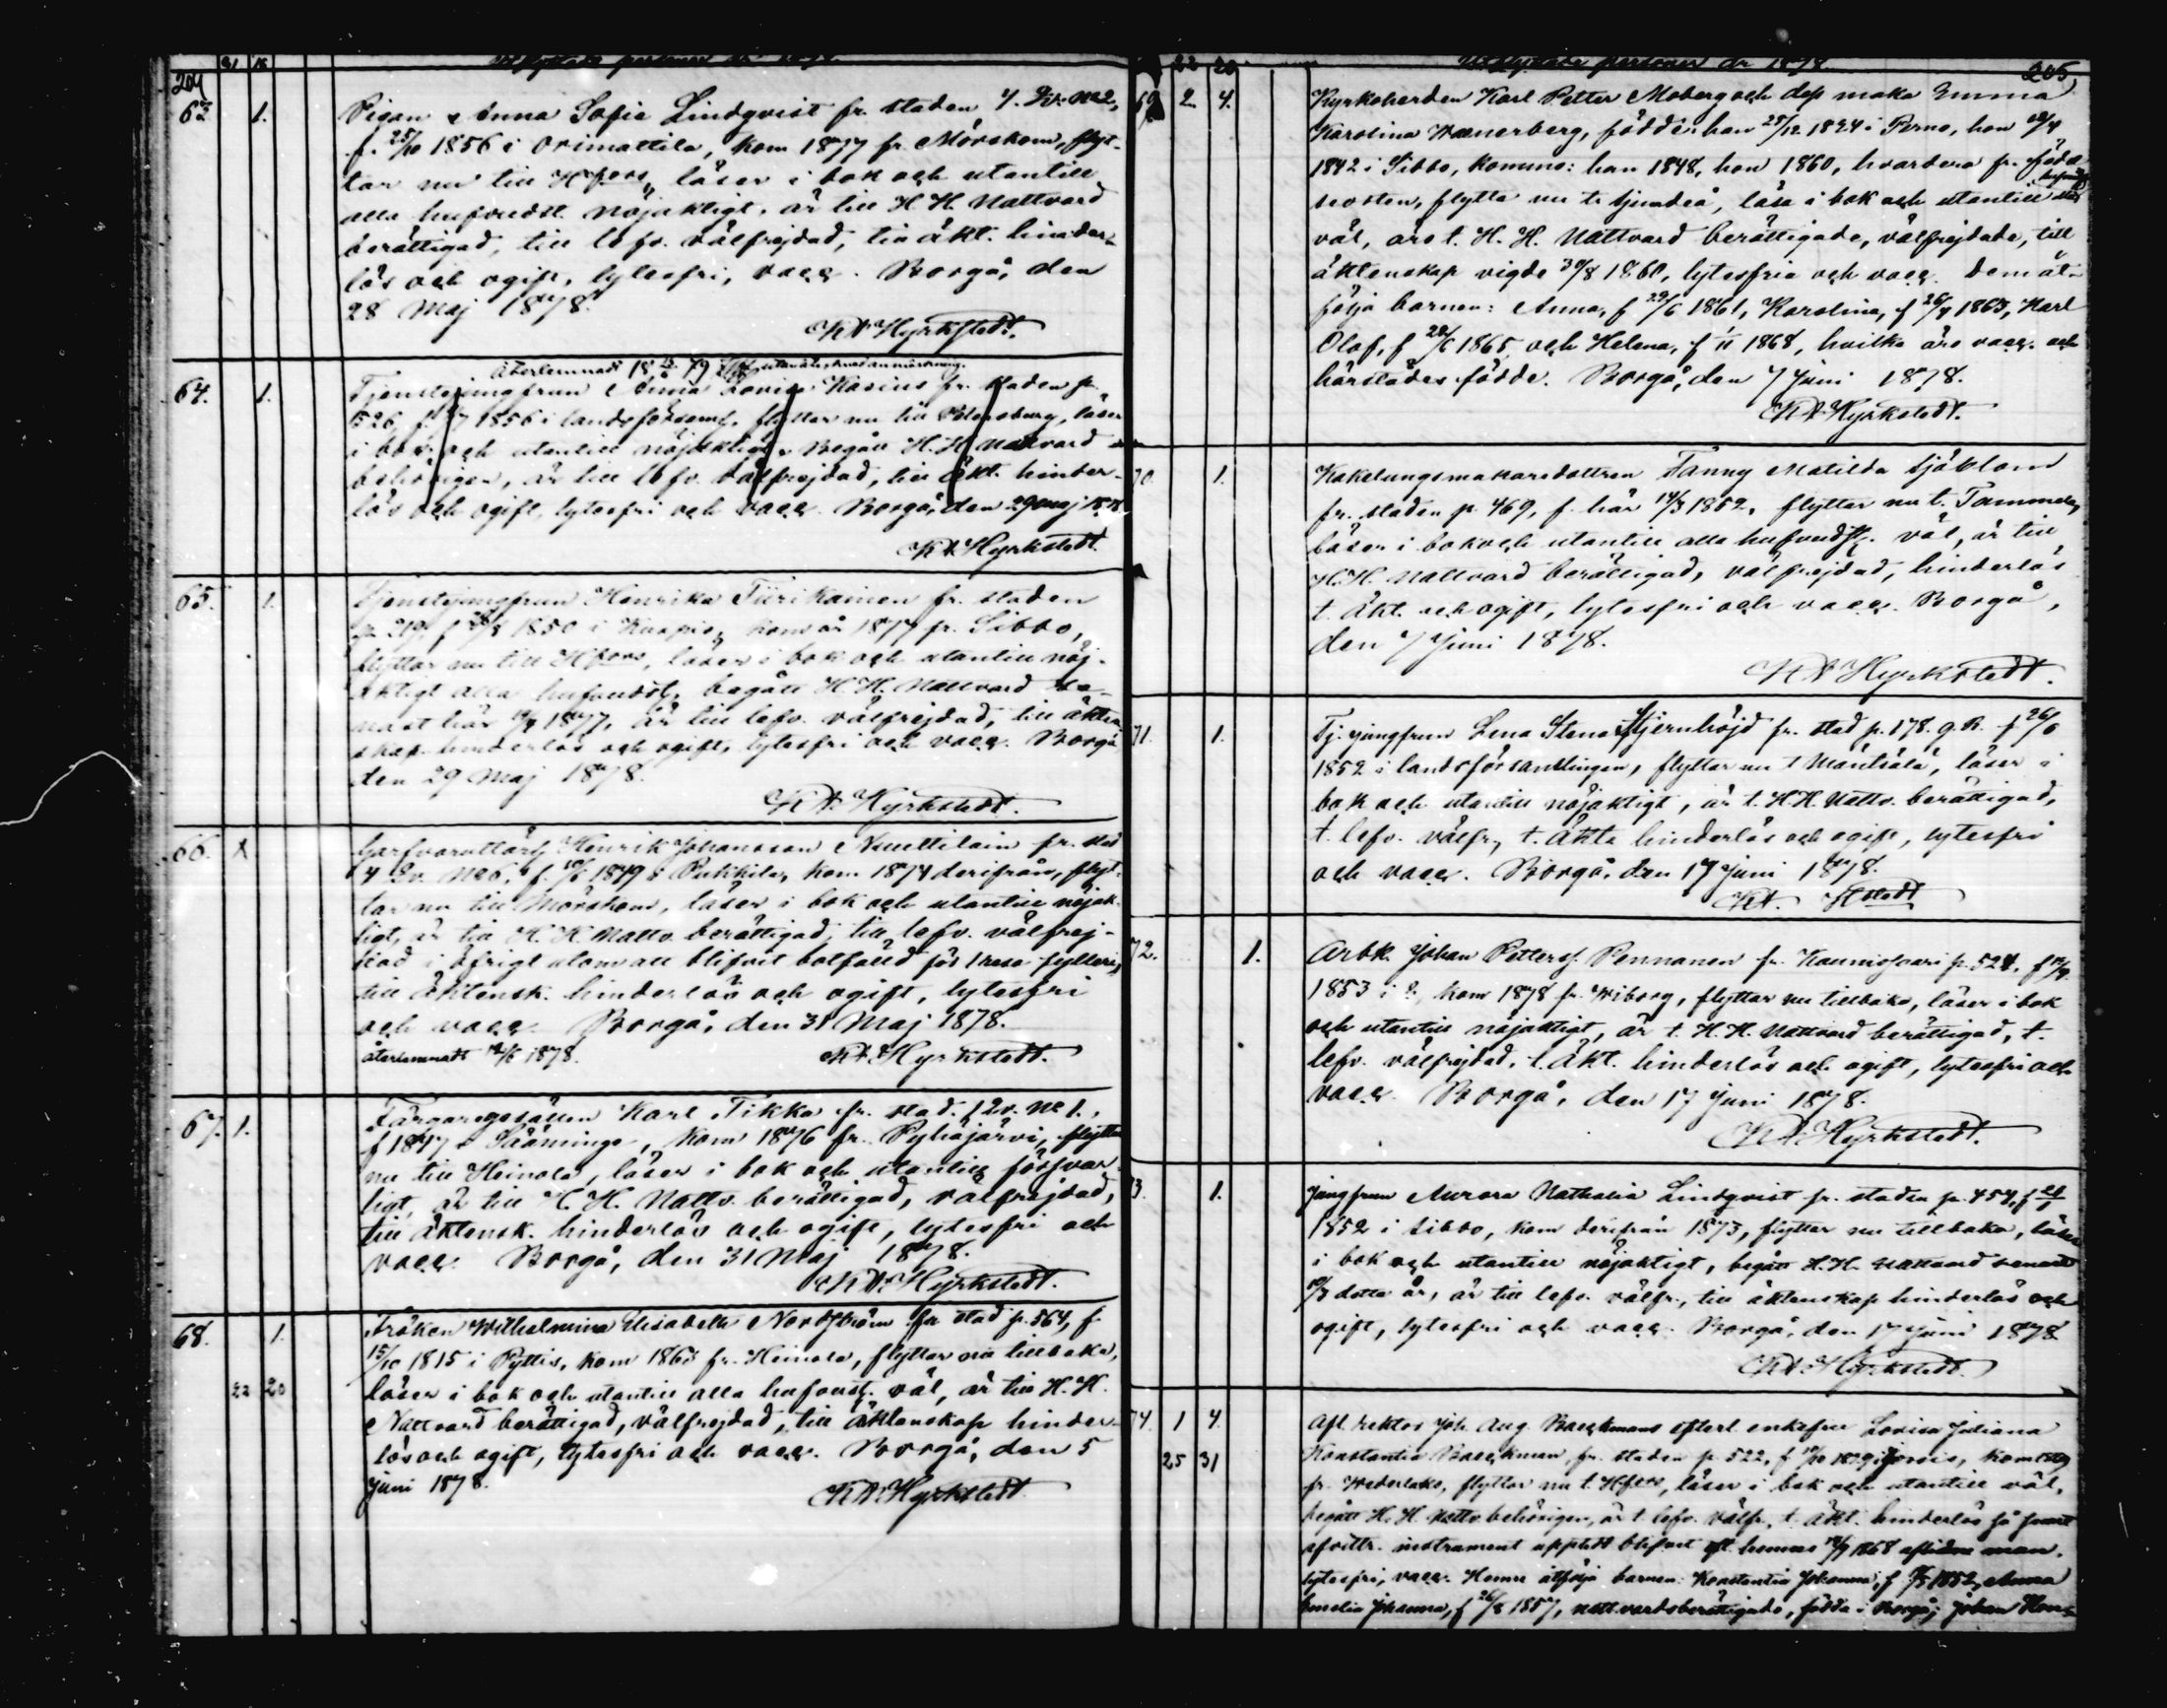 204
31 16
Utflyttade personer år 1878.
63 1. Pigan Anna Sofia Lindqvist fr. staden 4. Qv. No 2,
f. 25/10 1856 i Orimattila, kom 1877 fr. Mörskom, flyt-
tar nu till Hfors, läser i bok och utantill
alla hufvudst. nöjaktigt, är till H. H. Nattvard
berättigad, till lefv. välfrejdad, till äkt. hinder-
lös och ogift, lytesfri, vacc. Borgå, den
28 Maj 1878.
KA Hyrkstedt.
Återlemnadt 79 utan anmärkning.
64. 1. Tjenstejungfrun Anna Lovisa fr. staden p.
526, f. 1856 i landsförsaml. flyttar nu till Petersburg, läser
i bok och utantill nöjaktigt, Begått H. H. Nattvard
behörigen, är till lefv. välfrejdad, till äkt. hinder-
lös och ogift, lytesfri och vacc. Borgå, den 29 Maj 1878
KA Hyrkstedt.
65. 1. Tjenstejungfrun Henrika Tiirikainen fr. staden
p. 219 f. 1850 i Kuopio, kom år 1877 fr. Sibbo,
flyttar nu till Hfors, läser i bok och utantill nöj-
aktigt alla hufvudst. begått H. H. Nattvard se-
nast här 1877, är till lefv. välfrejdad, till äkten-
skap hinderlös och ogift, lytesfri och vacc. Borgå
den 29 Maj 1878.
KA. Hyrkstedt.
66. 1 Garfvaruttärf. Henrik Johansson Nuuttilain fr. stad
4 Qv. No 6, f. 10/6 1849 i Pukkila, kom 1874 derifrån, flyt-
tar nu till Mörskom, läser i bok och utantill nöjak-
tigt, är till H. H. Nattv. berättigad, till lefv. välfrej-
dad i öfrigt utom att blifvit botfälld för 1 resa fylleri,
till äktensk. hinderlös och ogift, lytesfri
och vacc Borgå, den 31 Maj 1878.
återlemnadt 1878. KA Hyrkstedt.
67. 1. Färgaregesällen Karl Tikka fr. stad. 1 Qv. No 1.,
f 1847 i Sääminge, kom 1876 fr. Pyhäjärvi, flyttar
nu till Heinola, läser i bok och utantill försvar-
ligt, är till H. H. Nattv. berättigad, välfrejdad,
till äktensk. hinderlös och ogift, lytesfri och
vacc. Borgå, den 31 Maj 1878.
KA Hyrkstedt.
68. 1. Fröken Wilhelmina Elisabeth Nordström fr stad p. 564, f.
15/10 1815 i Pyttis, kom 1863 fr. Heinola, flyttar nu tillbaka,
22 20 läser i bok och utantill alla hufvudst. väl, är till H. H.
Nattvard berättigad, välfrejdad, till äktenskap hinder-
lös och ogift, lytesfri och vacc. Borgå, den 5
Juni 1878.
KA Hyrkstedt
22 20
Utflyttade personer år 1878.
205
69 2 4. Kyrkoherden Karl Petter Moberg och dess maka Emma
Karolina Wænerberg, födde: han 25/12 1824 i Perno, hon
1842 i Sibbo, komna: han 1848, hon 1860, hvardera fr. födelse
seorten, flytta nu t. Sjundeå, läsa i bok och utantill
väl, äro t. H. H. Nattvard berättigade, välfrejdade, till
äktenskap vigde 30/8 1860, lytesfria och vacc. Dem åt-
följa barnen: Anna, f 29/6 1861, Karolina, f 1863, Karl
Olof, f 28/6 1865, och Helena, f 1868, hvilka äro vacc. och
härstädes födde. Borgå, den 7 Juni 1878.
KA Hyrkstedt.
70. 1. Kakelungsmakaredottren Fanny Matilda Sjöblom
fr. staden p. 469, f. här 14/3 1852, flyttar nu t. Tammela,
läser i bok och utantill alla hufvudst. väl, är till
H. H. Nattvard berättigad, välfrejdad, hinderlös
t. äkt. och ogift, lytesfri och vacc. Borgå,
den 7 Juni 1878.
KA Hyrkstedt.
71. 1. Tj. jungfrun Lena Stina Stjernhöjd fr. stad p. 178. g. B. f 26/6
1852 i landsförsamlingen, flyttar nu t Mäntsälä, läser i
bok och utantill nöjaktigt, är t. H. H. Nattv. berättigad,
t. lefv. välfr., t. äkta hinderlös och ogift, lytesfri
och vacc. Borgå, den 17 Juni 1878.
KA. Hstedt
72. 1. Arbk. Johan Petterss. Pennanen fr. Kaunissaari p. 524, f
1853 i ?, kom 1878 fr. Wiborg, flyttar nu tillbaka, läser i bok
och utantill nöjaktigt, är t. H. H. Nattvard berättigad, t.
lefv. välfrejdad, t. äkt. hinderlös och ogift, lytesfri och
vacc. Borgå, den 17 Juni 1878.
KA. Hyrkstedt.
73. 1. Jungfrun Aurora Nathalia Lindqvist fr. staden p. 454, f
1852 i Sibbo, kom derifrån 1873, flyttar nu tillbaka, läser
i bok och utantill nöjaktigt, begått H. H. Nattvard senast
detta år, är till lefv. välfr., till äktenskap hinderlös och
ogift, lytesfri och vacc. Borgå, den 17 Juni 1878
KA Hyrkstedt.
74. 1 4. Afl. rektor Joh. Aug. Backmans efterl. enkefru Lovisa Juliana
25 31 Konstantia Backman, fr. staden p. 522, f 10/10 kom
fr. Wederlaks, flyttar nu t. Hfors, läser i bok och utantill väl,
begått H. H. Nattv. behörigen, är t. lefv. välfr., t. äkt. hinderlös så snart
afvittr. instrument upptedt blifvit eft. hennes 1868 aflidne man,
lytesfri, vacc. Henne åtfölja barnen: Konstantia Johanna, f 1852, Anna
Amelia Johanna, f 26/8 1857, nattvardsberättigade, födda i Borgå; Johan